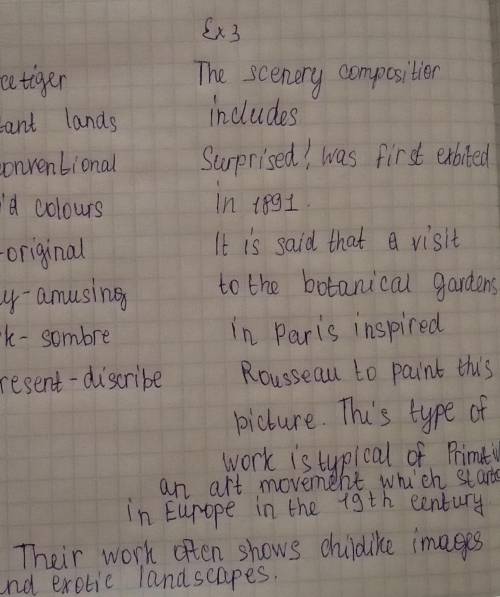 Ex 3
cetiger
tant lands
conventional
id colours
-original
y-amusing
k- sombre
resent-discribe
The scenery composition
includes
Surprised! was first exbited
in 1891.
It is said that a visit
to the botanical gardens
in Paris inspired
Rousseau to paint this
picture. This type of
work is typical of Primitiv
an art movement which starte
in Europe in the 19th century
Their work often shows childlike images
and exotic landscapes.